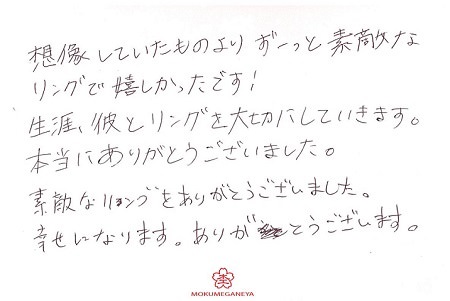 想像していたものより ずーっと 素敵な
リングで 嬉しかったです!
生涯、彼とリングを大切にしていきます。
本当にありがとうございました。
素敵なリングをありがとうございました。
幸せになります。ありがとうございます。
MOKUMEGANEYA